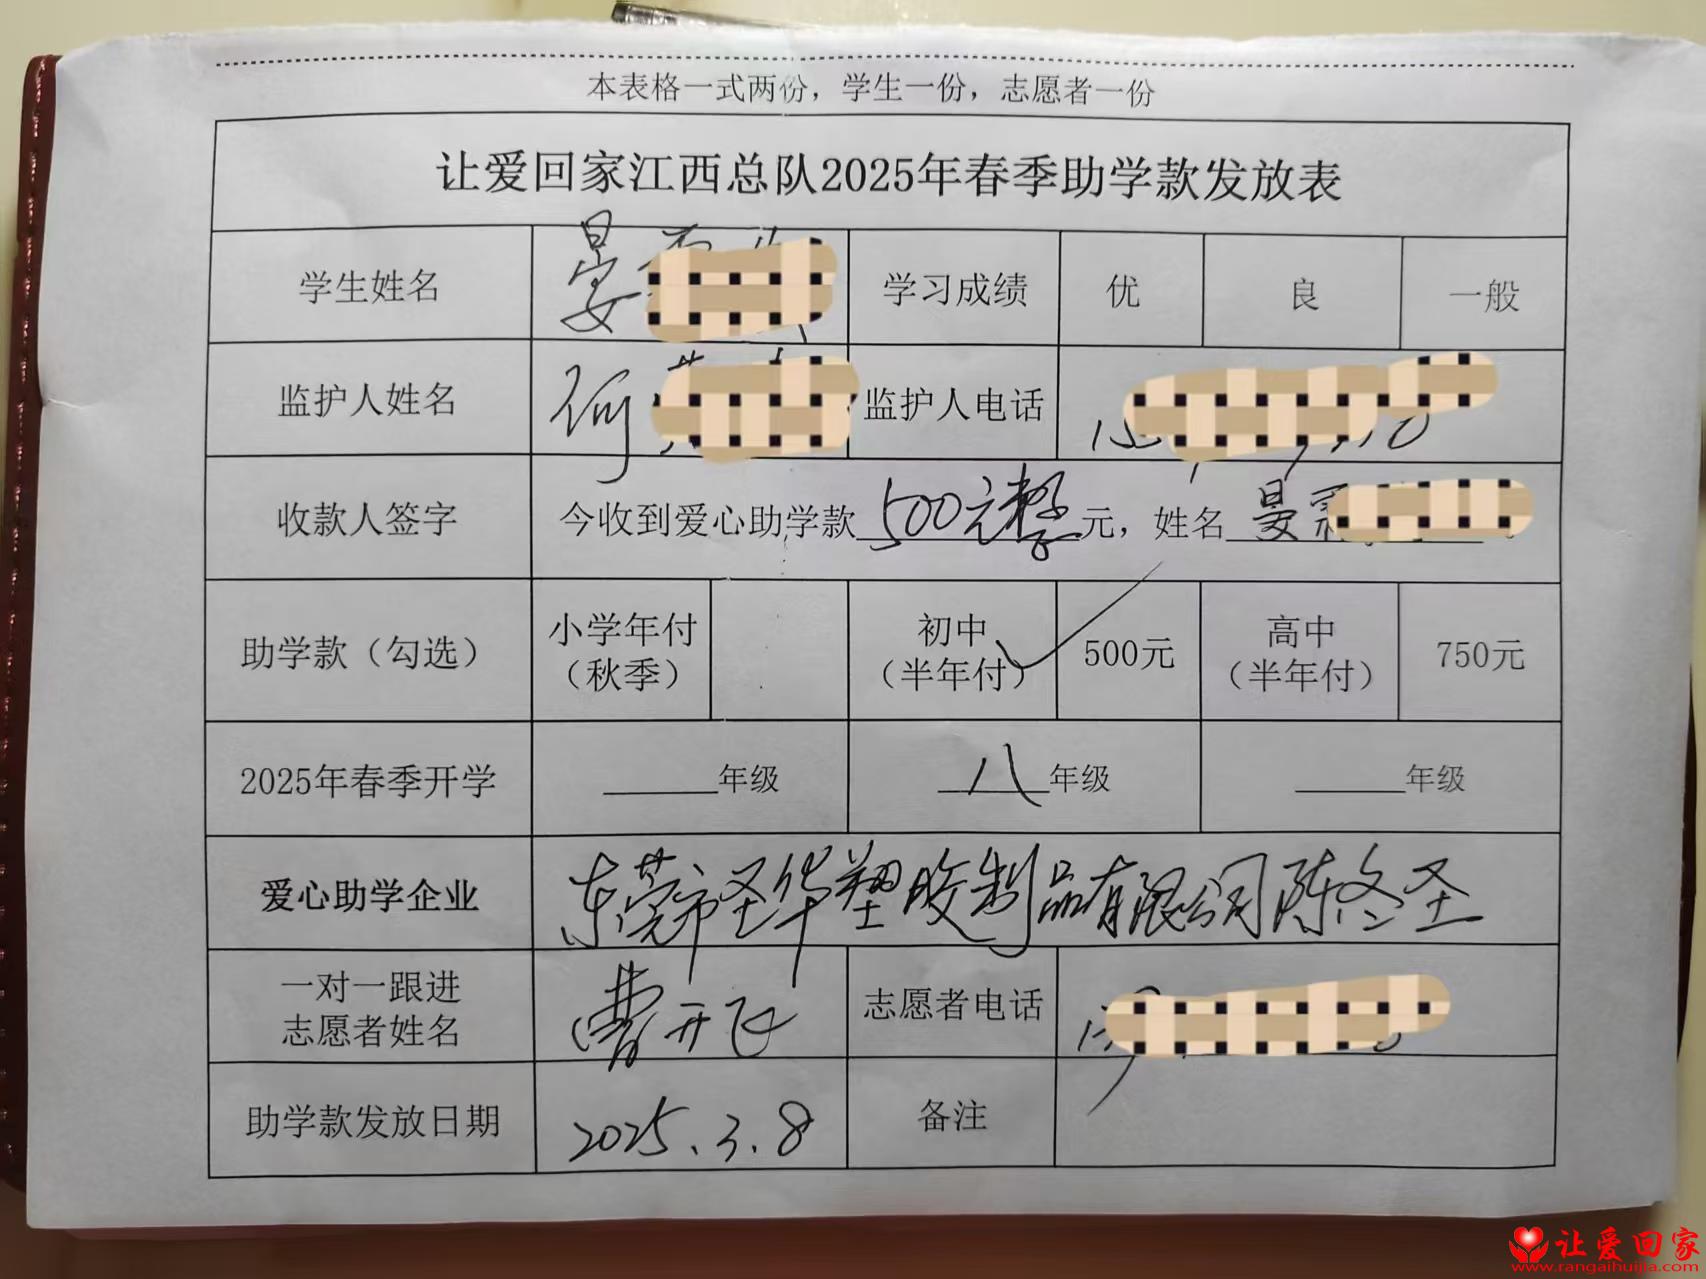 本表格一式两份，学生一份，志愿者一份
让爱回家江西总队2025年春季助学款发放表
学生姓名 晏 学习成绩 优 良 一般
监护人姓名 何 监护人电话
收款人签字 今收到爱心助学款500元整元，姓名晏
助学款（勾选） 小学年付（秋季） 初中（半年付）✓ 500元 高中（半年付） 750元
2025年春季开学 ______年级 八年级 ______年级
爱心助学企业 东莞市圣华塑胶制品有限公司陈冬圣
一对一跟进志愿者姓名 曹开飞 志愿者电话
助学款发放日期 2025.3.8 备注
让爱回家
www.rangaihuijia.com